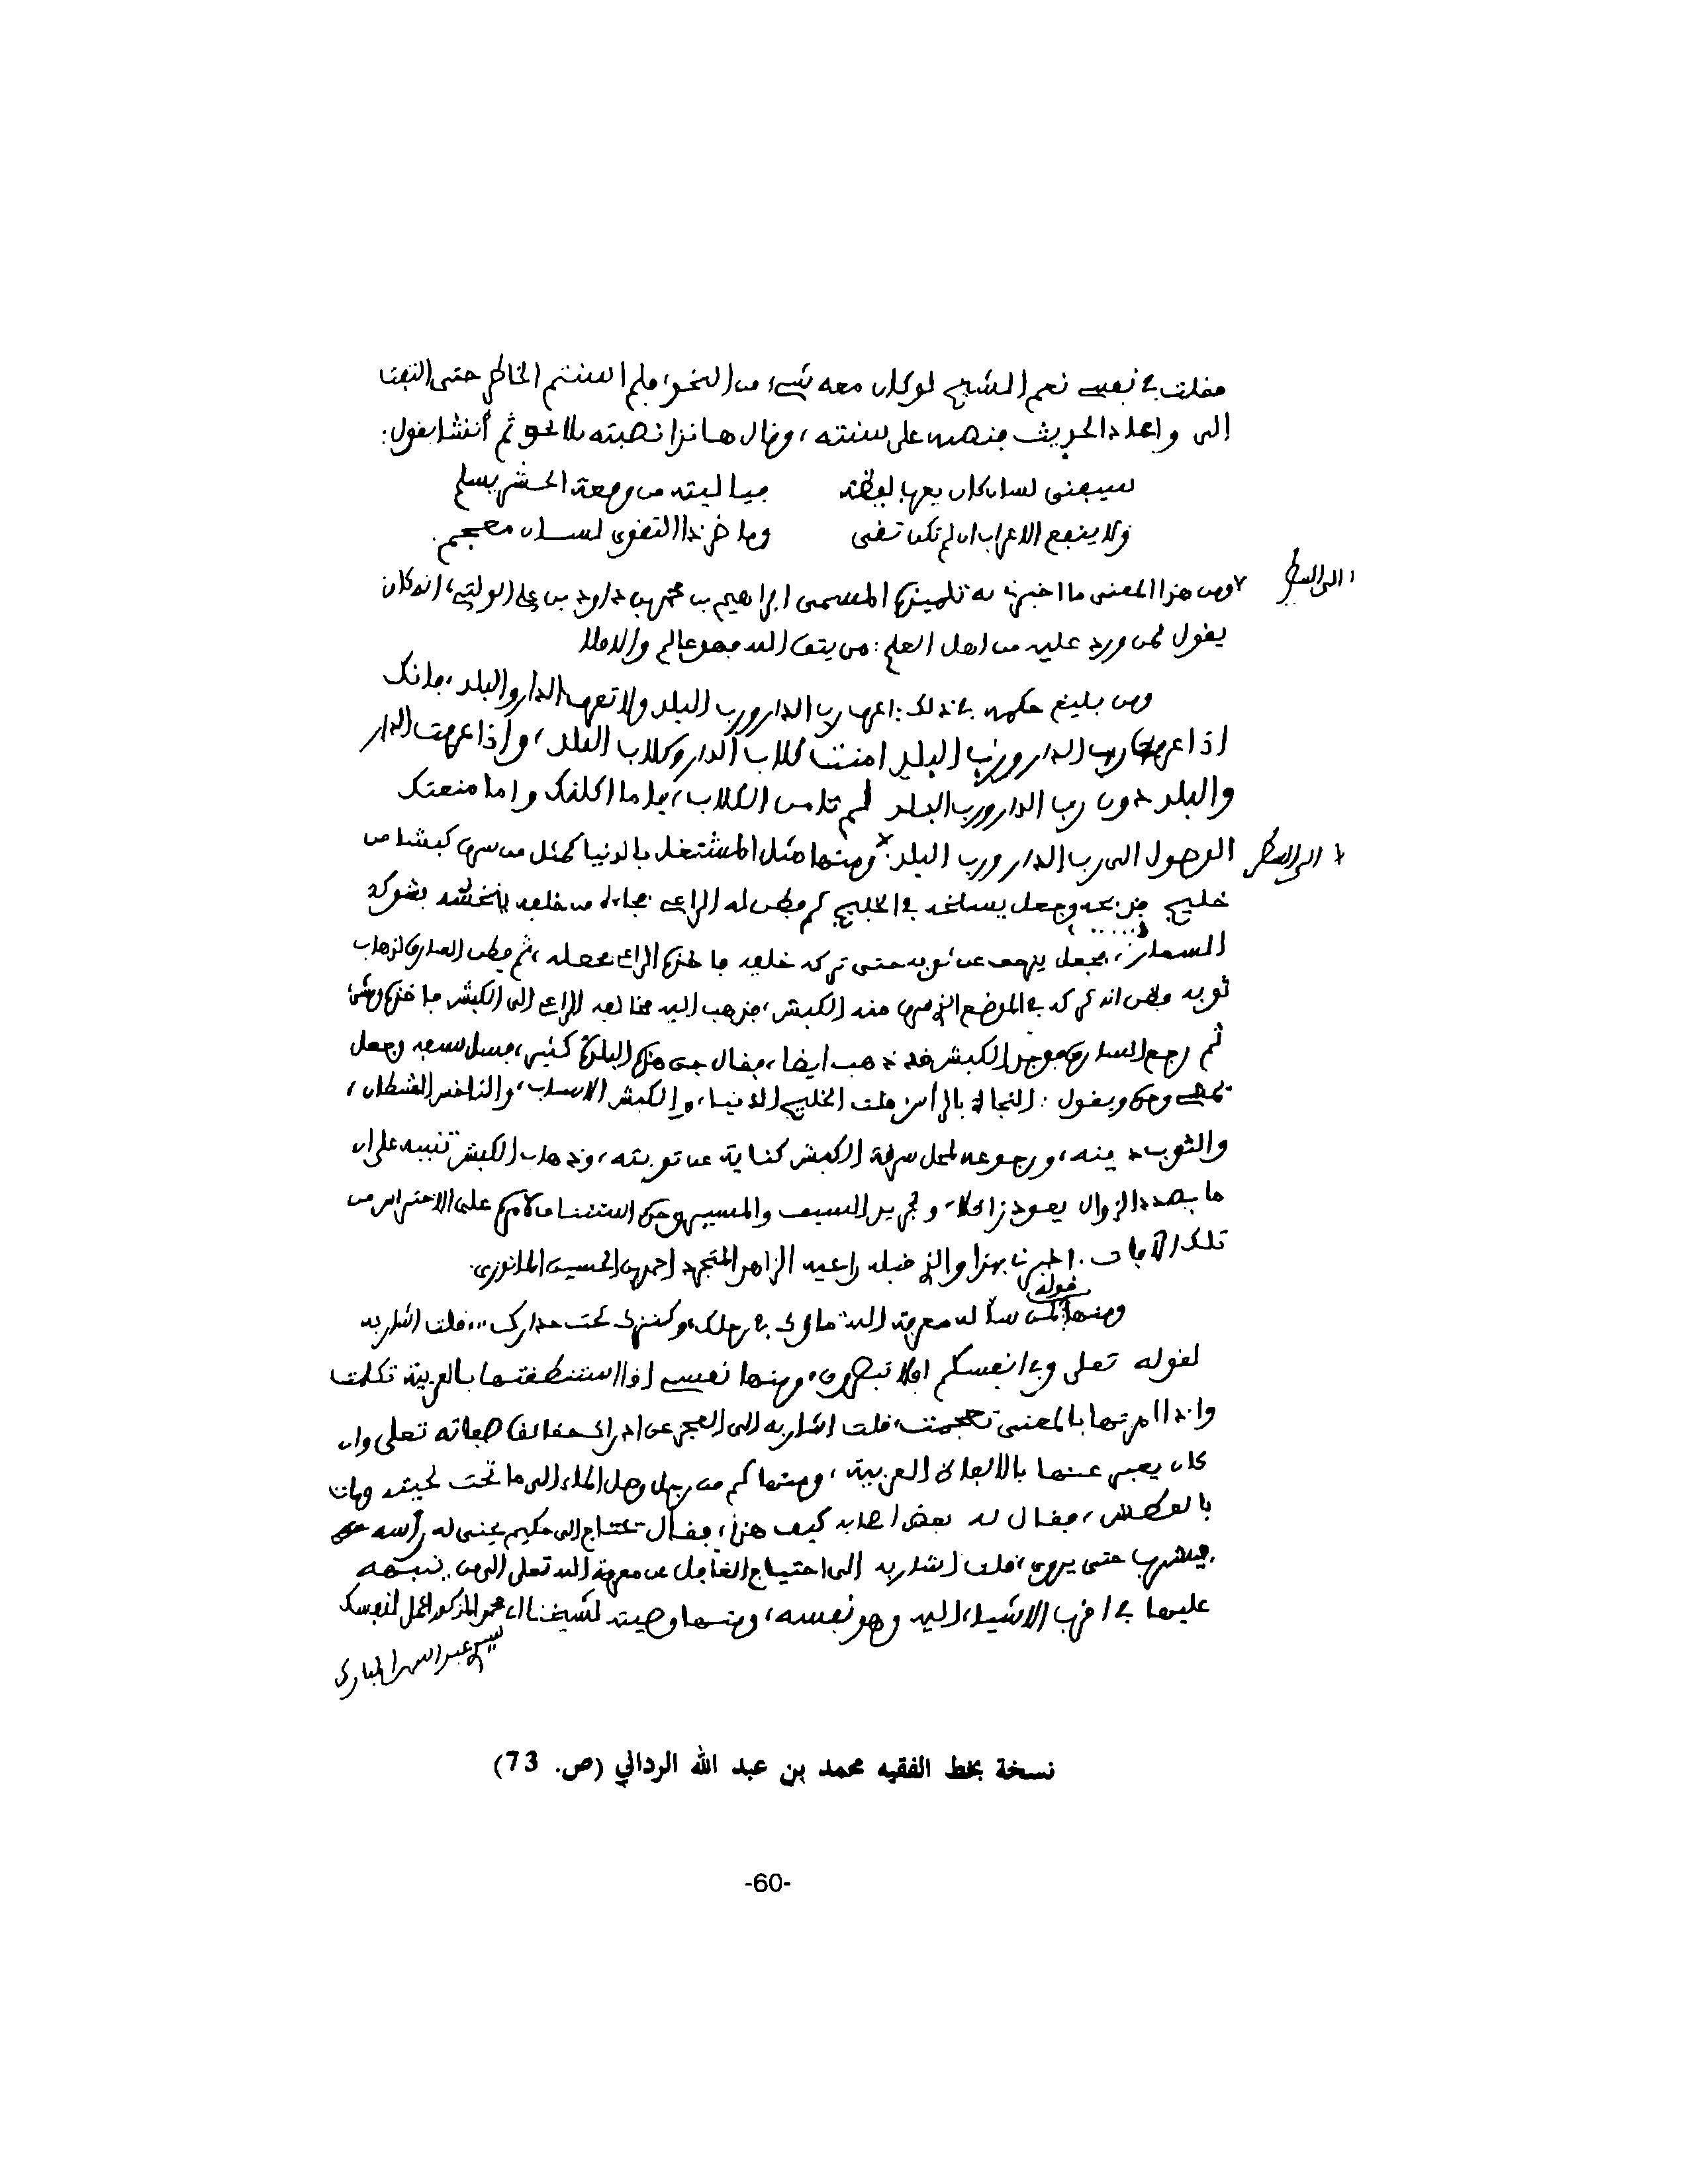 فقلت في نفسي نعم الشيخ لو كان معه شيء من النحو، فلم استتم الخاطر حتى التفت
إلى واعاد الحديث فنصب على سنته، وقال هانذا نصبته بلا نحو ثم أنشا يقول:
سيبقى لسان كان يعرب لفظه فيا ليته من وقعة الحشر يسلم
ولا ينفع الاعراب ان لم تكن تقى وما ضر ذا التقوى لسان معجم.
١ الى السطر ومن هذا المعنى ما اخبرني به تلميذه المسمى ابراهيم بن محمد بن داود بن علي الولتي، انه كان
يقول لمن ورد عليه من اهل العلم: من يتق الله فهو عالم والا فلا
ومن بليغ حكمه في ذلك: اعرف رب الدار ورب البلد ولا تعرف الدار والبلد، فانك
اذا عرفت رب الدار ورب البلد امنت كلاب الدار وكلاب البلد، واذا عرفت الدار
والبلد دون رب الدار ورب البلد لم تامن الكلاب، فاما اكلتك واما منعتك
١ الى السطر الوصول الى رب الدار ورب البلد. ومنها مثل المشتغل بالدنيا كمثل من سرق كبشا من
خليج فذبحه وجعل يسلخه في الخليج لم يفطن له الراعي فجاءه من خلفه فنخسه بشوكة
السمار، فجعل يرفع عن ثوبه حتى تركه خلفه فاخذه الراعي فجعله، ثم فطن السارق لذهاب
ثوبه فظن انه تركه في الموضع الذي سرق منه الكبش، فذهب اليه فخالفه الراعي الى الكبش فاخذه ومشى،
ثم رجع السارق فوجد الكبش قد ذهب ايضا، فقال جن هذه البلدة كثير، فسل سيفه وجعل
وحده ويقول: النجاة بالرأس قلت الخليج الدنيا، والكبش الاسباب، والناخس الشيطان،
والثوب دينه، ورجوعه لمحل سرقة الكبش كناية عن توبته، وذهاب الكبش تنبيه على ان
ما بصدد الزوال يعود زائلا، وتجريد السيف والمسير وحده استئناف الامره على الاحتراس من
تلك الآفات. اخبرنا بهذا والذي قبله راعيه الزاهد المتجهد احمد بن الحسين المانوزي.
ومنها قوله لمن سأله معرفة الله تعالى في رحلك، وكنزك تحت جدارك... قلت اشار به
لقوله تعلى وفي انفسكم افلا تبصرون، ومنها نفسي اذا استنطقتها بالعربية تكلمت
واذا امرتها بالمعنى تعجمت، قلت اشار به الى العجز عن ادراك حقائق صفاته تعلى وان
كان يعبر عنها بالالفاظ العربية، ومنها كم من رجل وصل الماء الى ما تحت لحيته ومات
بالعطش، فقال له بعض اصحابه كيف هذا، فقال تحتاج الى حكيم يحنى له رأسه
فيشرب حتى يروى، قلت اشار به الى احتياج الغافل عن معرفة الله تعلى الى من ينبهه
عليها في اقرب الاشياء اليه وهو نفسه، ومنها وصيته لشيخنا ابن محمد المذكور اعمل لنفسك
سيدي عبد الله بن المبارك
نسخة بخط الفقيه محمد بن عبد الله الردالي (ص. 73)
-60-